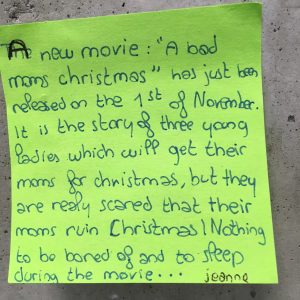 The new movie: "A bad
moms christmas" has just been
released on the 1st of November.
It is the story of three young
ladies which will get their
moms for christmas, but they
are realy scared that their
moms ruin Christmas! Nothing
to be bored of and to sleep
during the movie... jeanne